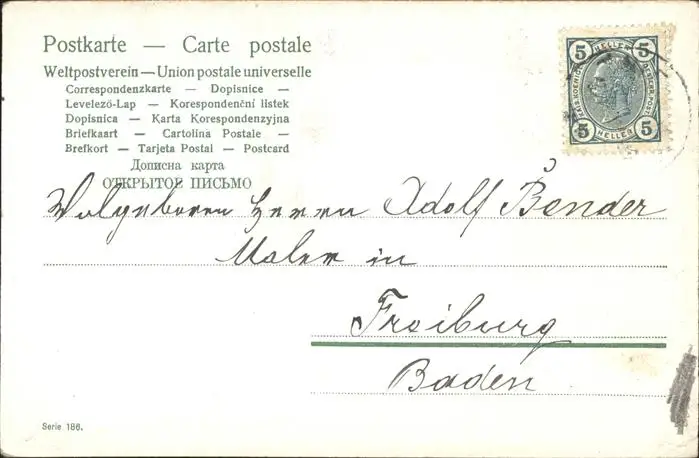 Postkarte — Carte postale
Weltpostverein — Union postale universelle
Correspondenzkarte — Dopisnice —
Levelező-Lap — Korespondenční listek
Dopisnica — Karta Korespondenzyjna
Briefkaart — Cartolina Postale —
Brefkort — Tarjeta Postal — Postcard
Дописна карта
ОТКРЫТОЕ ПИСЬМО
5 HELLER 5
KAIS. KOENIGL. OESTERR. POST
5 HELLER 5
Wolgeboren Herrn Adolf Bender
Maler in
Freiburg
Baden
Serie 186.